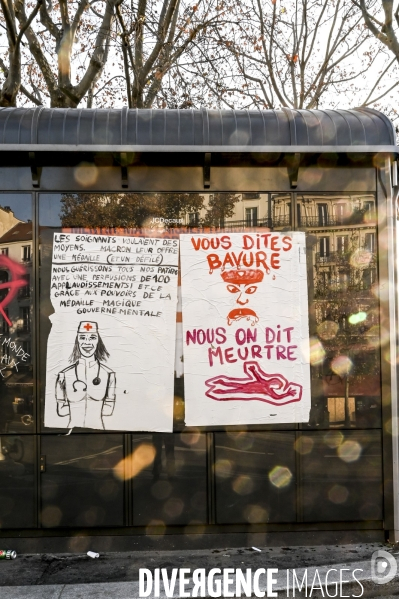 JCDecaux
LES SOIGNANTS VOULAIENT DES
MOYENS. MACRON LEUR OFFRE
UNE MÉDAILLE (ET UN DÉFILÉ)
NOUS GUÉRISSONS TOUS NOS PATIEN
AVEC UNE PERFUSIONS DE 100
APPLAUDISSEMENTS! ET LE
GRÂCE AUX POUVOIRS DE LA
MÉDAILLE MAGIQUE
GOUVERNEMENTALE
VOUS DITES
BAVURE
NOUS ON DIT
MEURTRE
MONDE
DIVERGENCE IMAGES